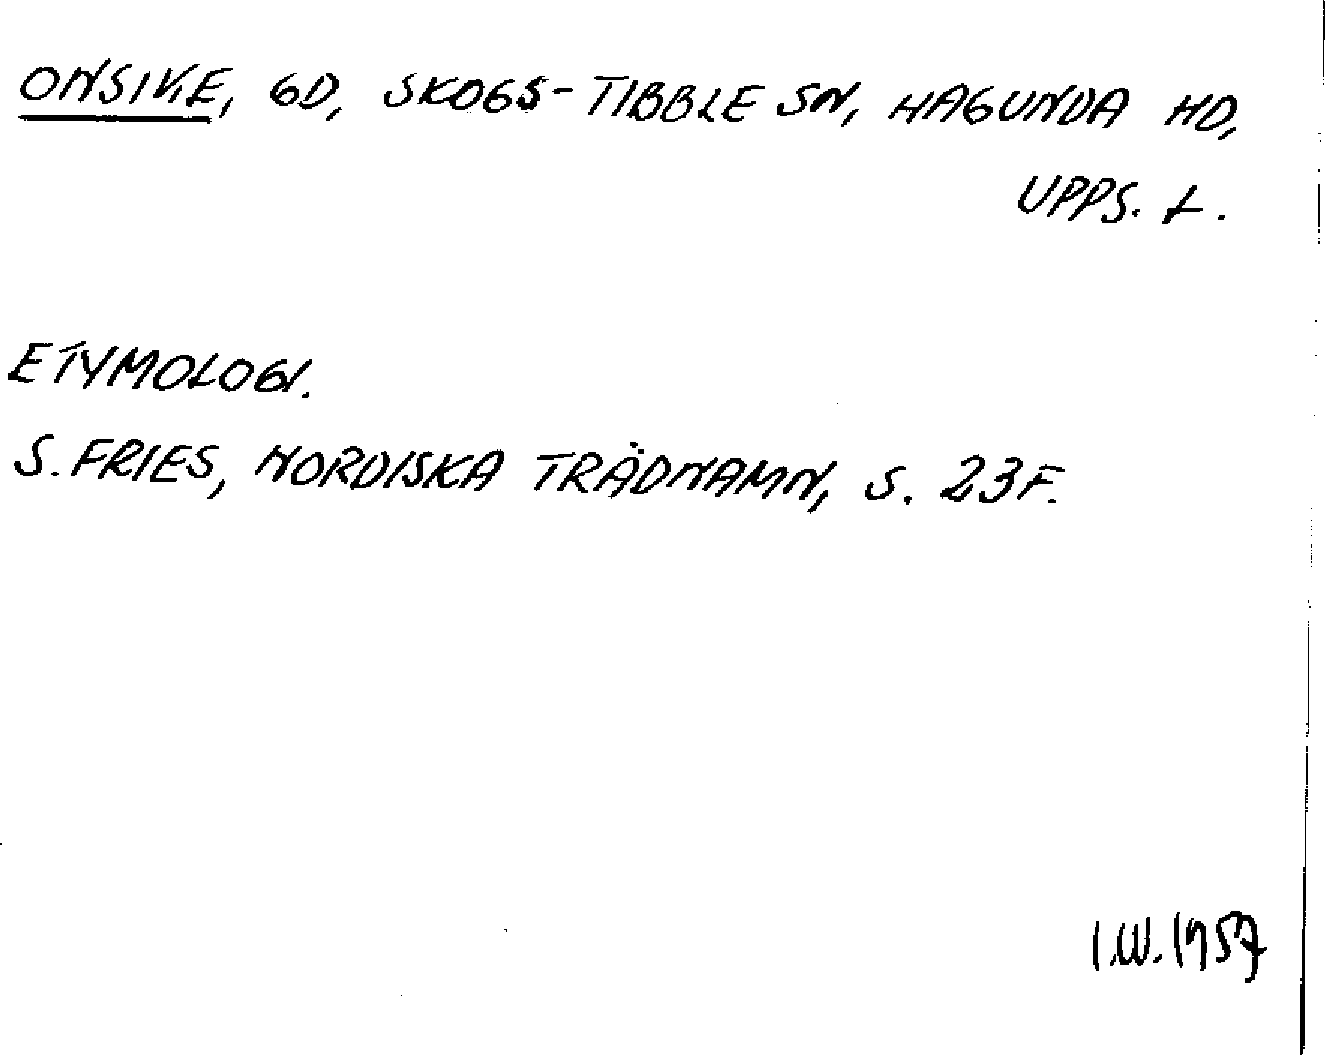 ONSIKE, GD, SKOGS-TIBBLE SN, HAGUNDA HD,
UPPS. L.
ETYMOLOGI.
S. FRIES, NORDISKA TRÄDNAMN, S. 23F.
I.W. 1957